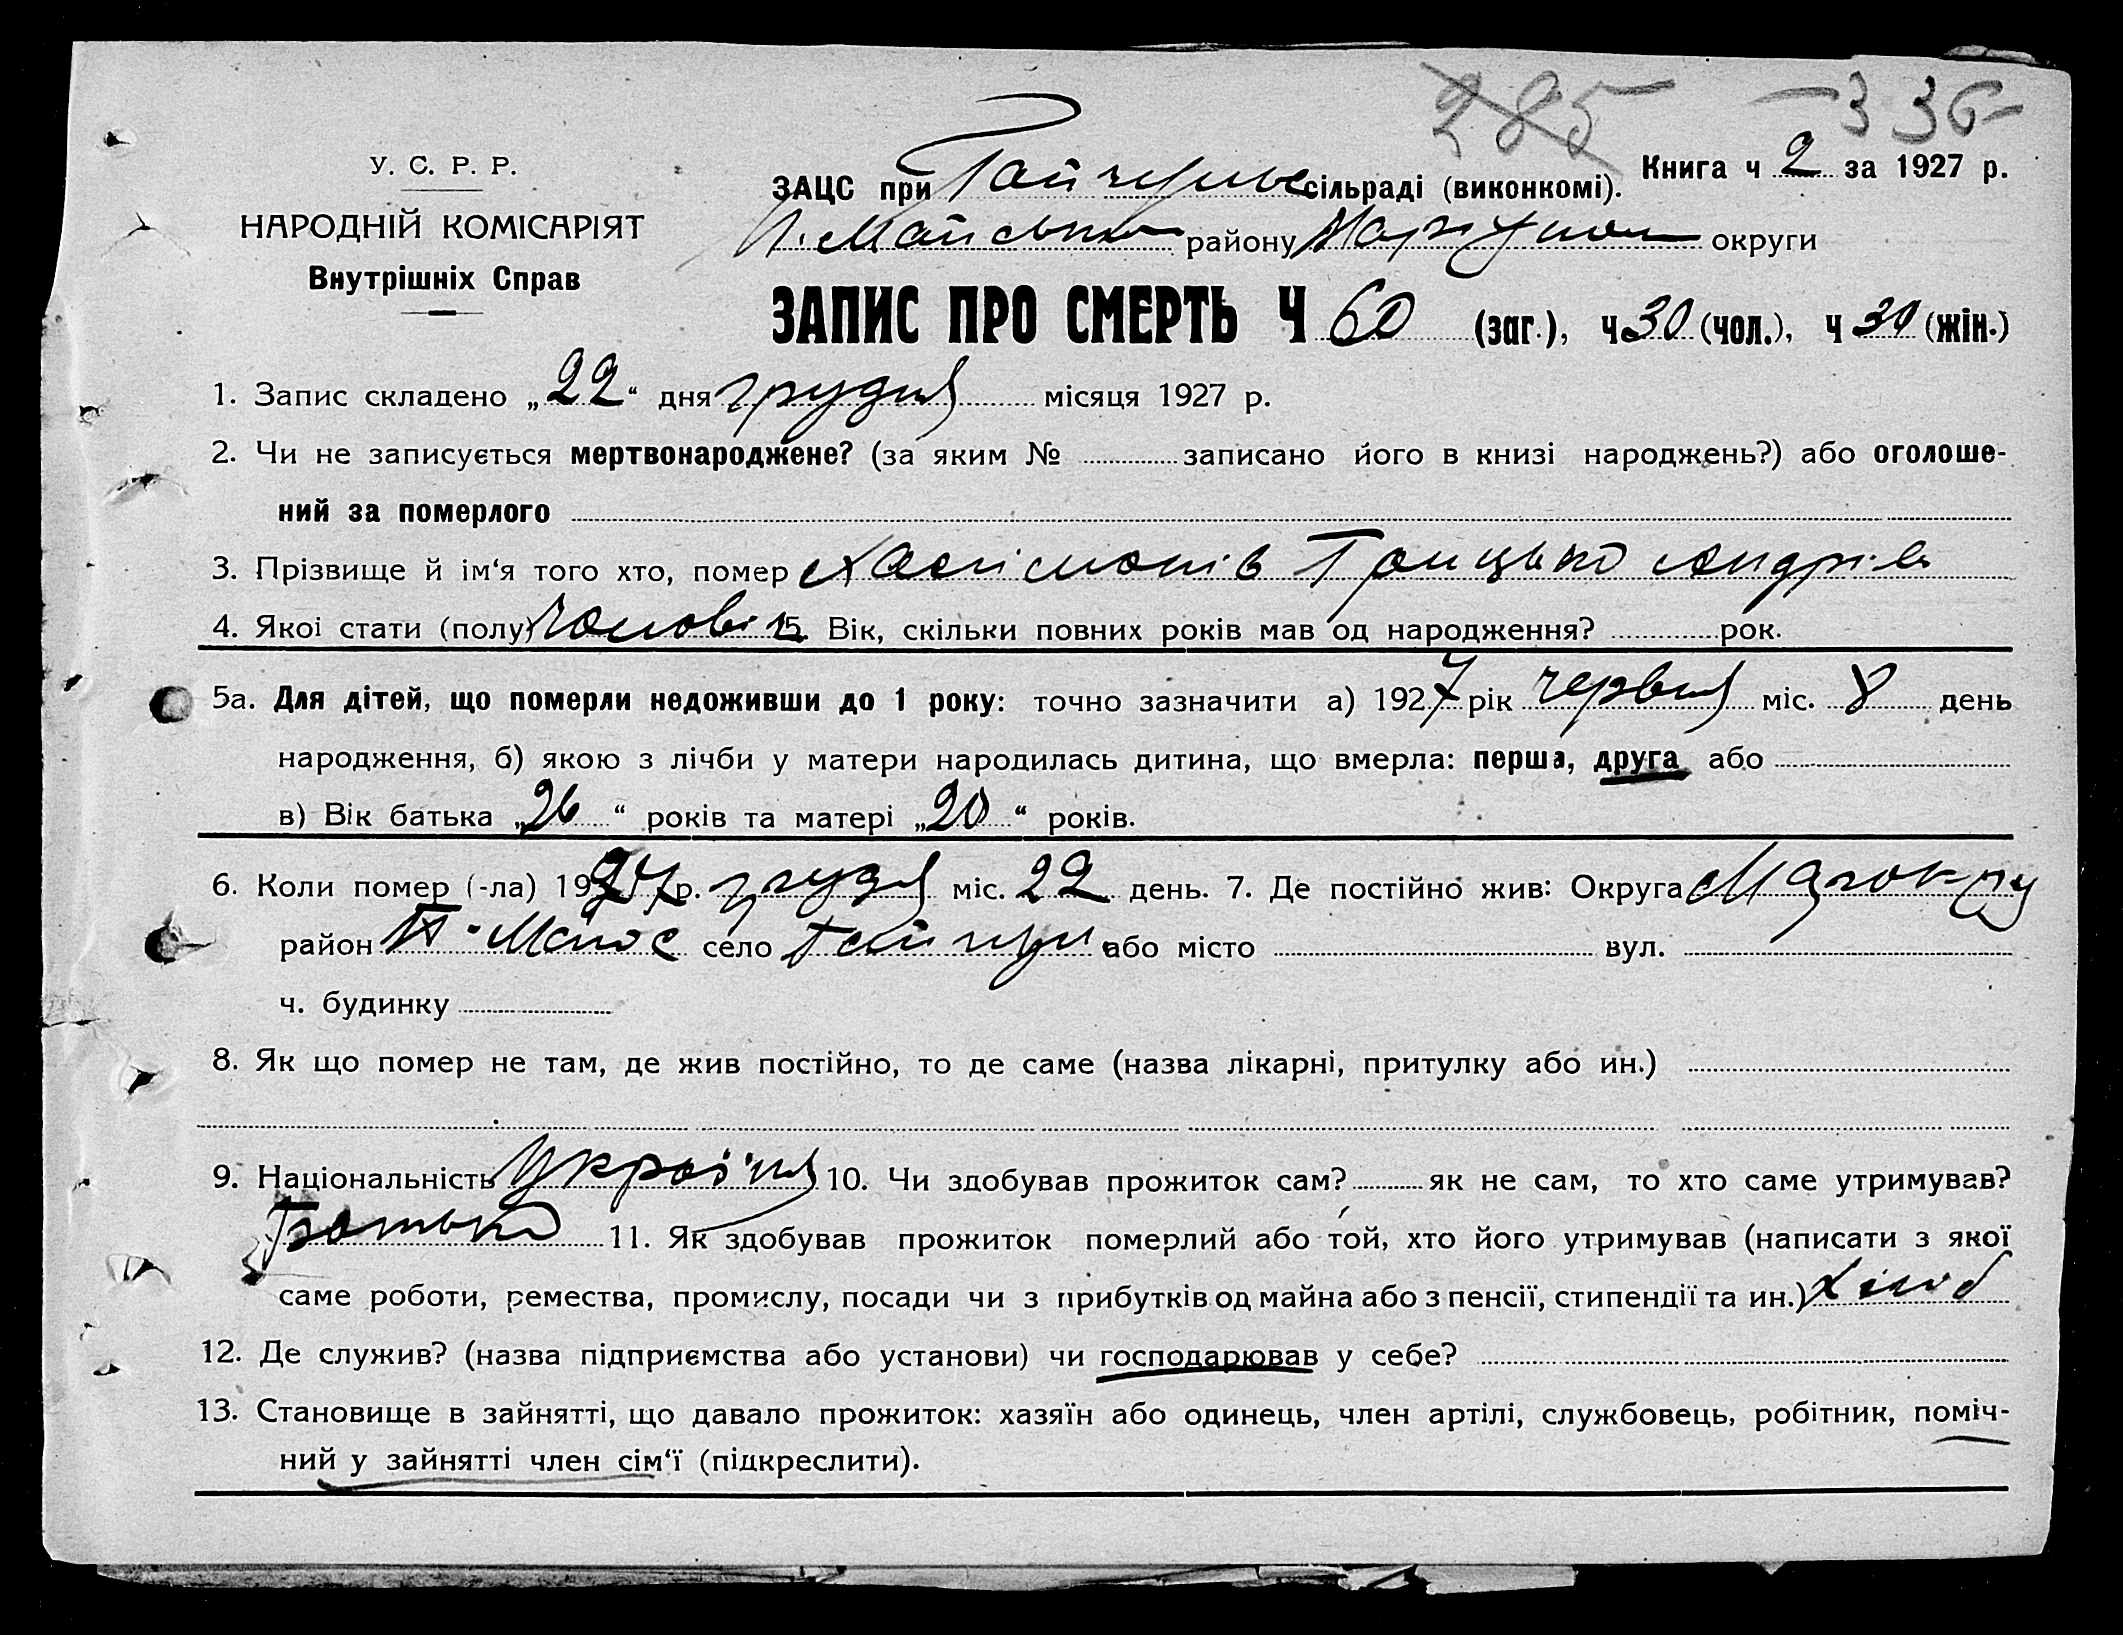 285 — 336 —
У. С. Р. Р.
НАРОДНІЙ КОМІСАРІЯТ
Внутрішніх Справ
ЗАЦС при Гайчульс сільраді (виконкомі). Книга ч 2 за 1927 р.
П. Майсько району Маріупол округи
ЗАПИС ПРО СМЕРТЬ Ч 60 (заг.), ч 30 (чол.), ч 30 (жін.)
1. Запис складено „22“ дня грудня місяця 1927 р.
2. Чи не записується мертвонароджене? (за яким № записано його в книзі народжень?) або оголоше-
ний за померлого
3. Прізвище й ім‘я того хто, помер Грицько Андрія
4. Якоі стати (полу) чолові 5. Вік, скільки повних років мав од народження? рок.
5а. Для дітей, що померли недоживши до 1 року: точно зазначити а) 1927 рік червня міс. 8 день
народження, б) якою з лічби у матери народилась дитина, що вмерла: перша, друга або
в) Вік батька „26“ років та матері „20“ років.
6. Коли помер (-ла) 1927 р. грудня міс. 22 день. 7. Де постійно жив: Округа
район П-Майс село Гайчул або місто вул.
ч. будинку
8. Як що помер не там, де жив постійно, то де саме (назва лікарні, притулку або ин.)
9. Національність україня 10. Чи здобував прожиток сам? як не сам, то хто саме утримував?
Батько 11. Як здобував прожиток померлий або той, хто його утримував (написати з якої
саме роботи, ремества, промислу, посади чи з прибутків од майна або з пенсії, стипендії та ин.) Хліб
12. Де служив? (назва підприємства або установи) чи господарював у себе?
13. Становище в зайнятті, що давало прожиток: хазяїн або одинець, член артілі, службовець, робітник, поміч-
ний у зайнятті член сім‘ї (підкреслити).